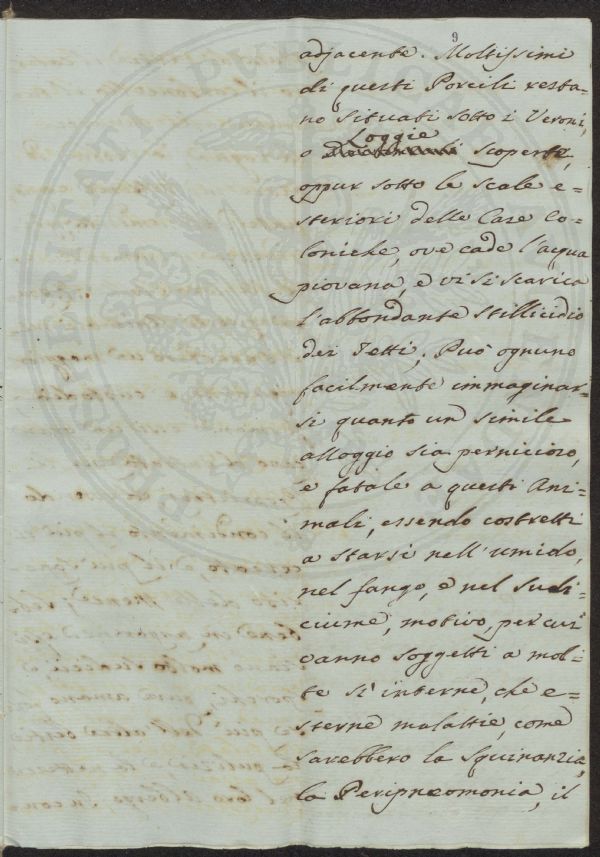 9
adjacente. Moltissimi
di questi Porcili resta-
no situati sotto i Veroni,
o Loggie scoperte,
oppur sotto le scale e=
steriori delle Case Co-
loniche, ove cade l'acqua
piovana, e vi si scarica
l'abbondante stillicidio
dei Tetti; Può ognuno
facilmente immaginar-
si quanto un simile
alloggio sia pernicioso,
e fatale a questi Ani-
mali, essendo costretti
a starsi nell'umido,
nel fango, e nel sudi-
ciume, motivo, per cui
vanno soggetti a mol-
te sì interne, che e=
sterne malattie, come
sarebbero la Squinanzia,
la Peripneomonia, il